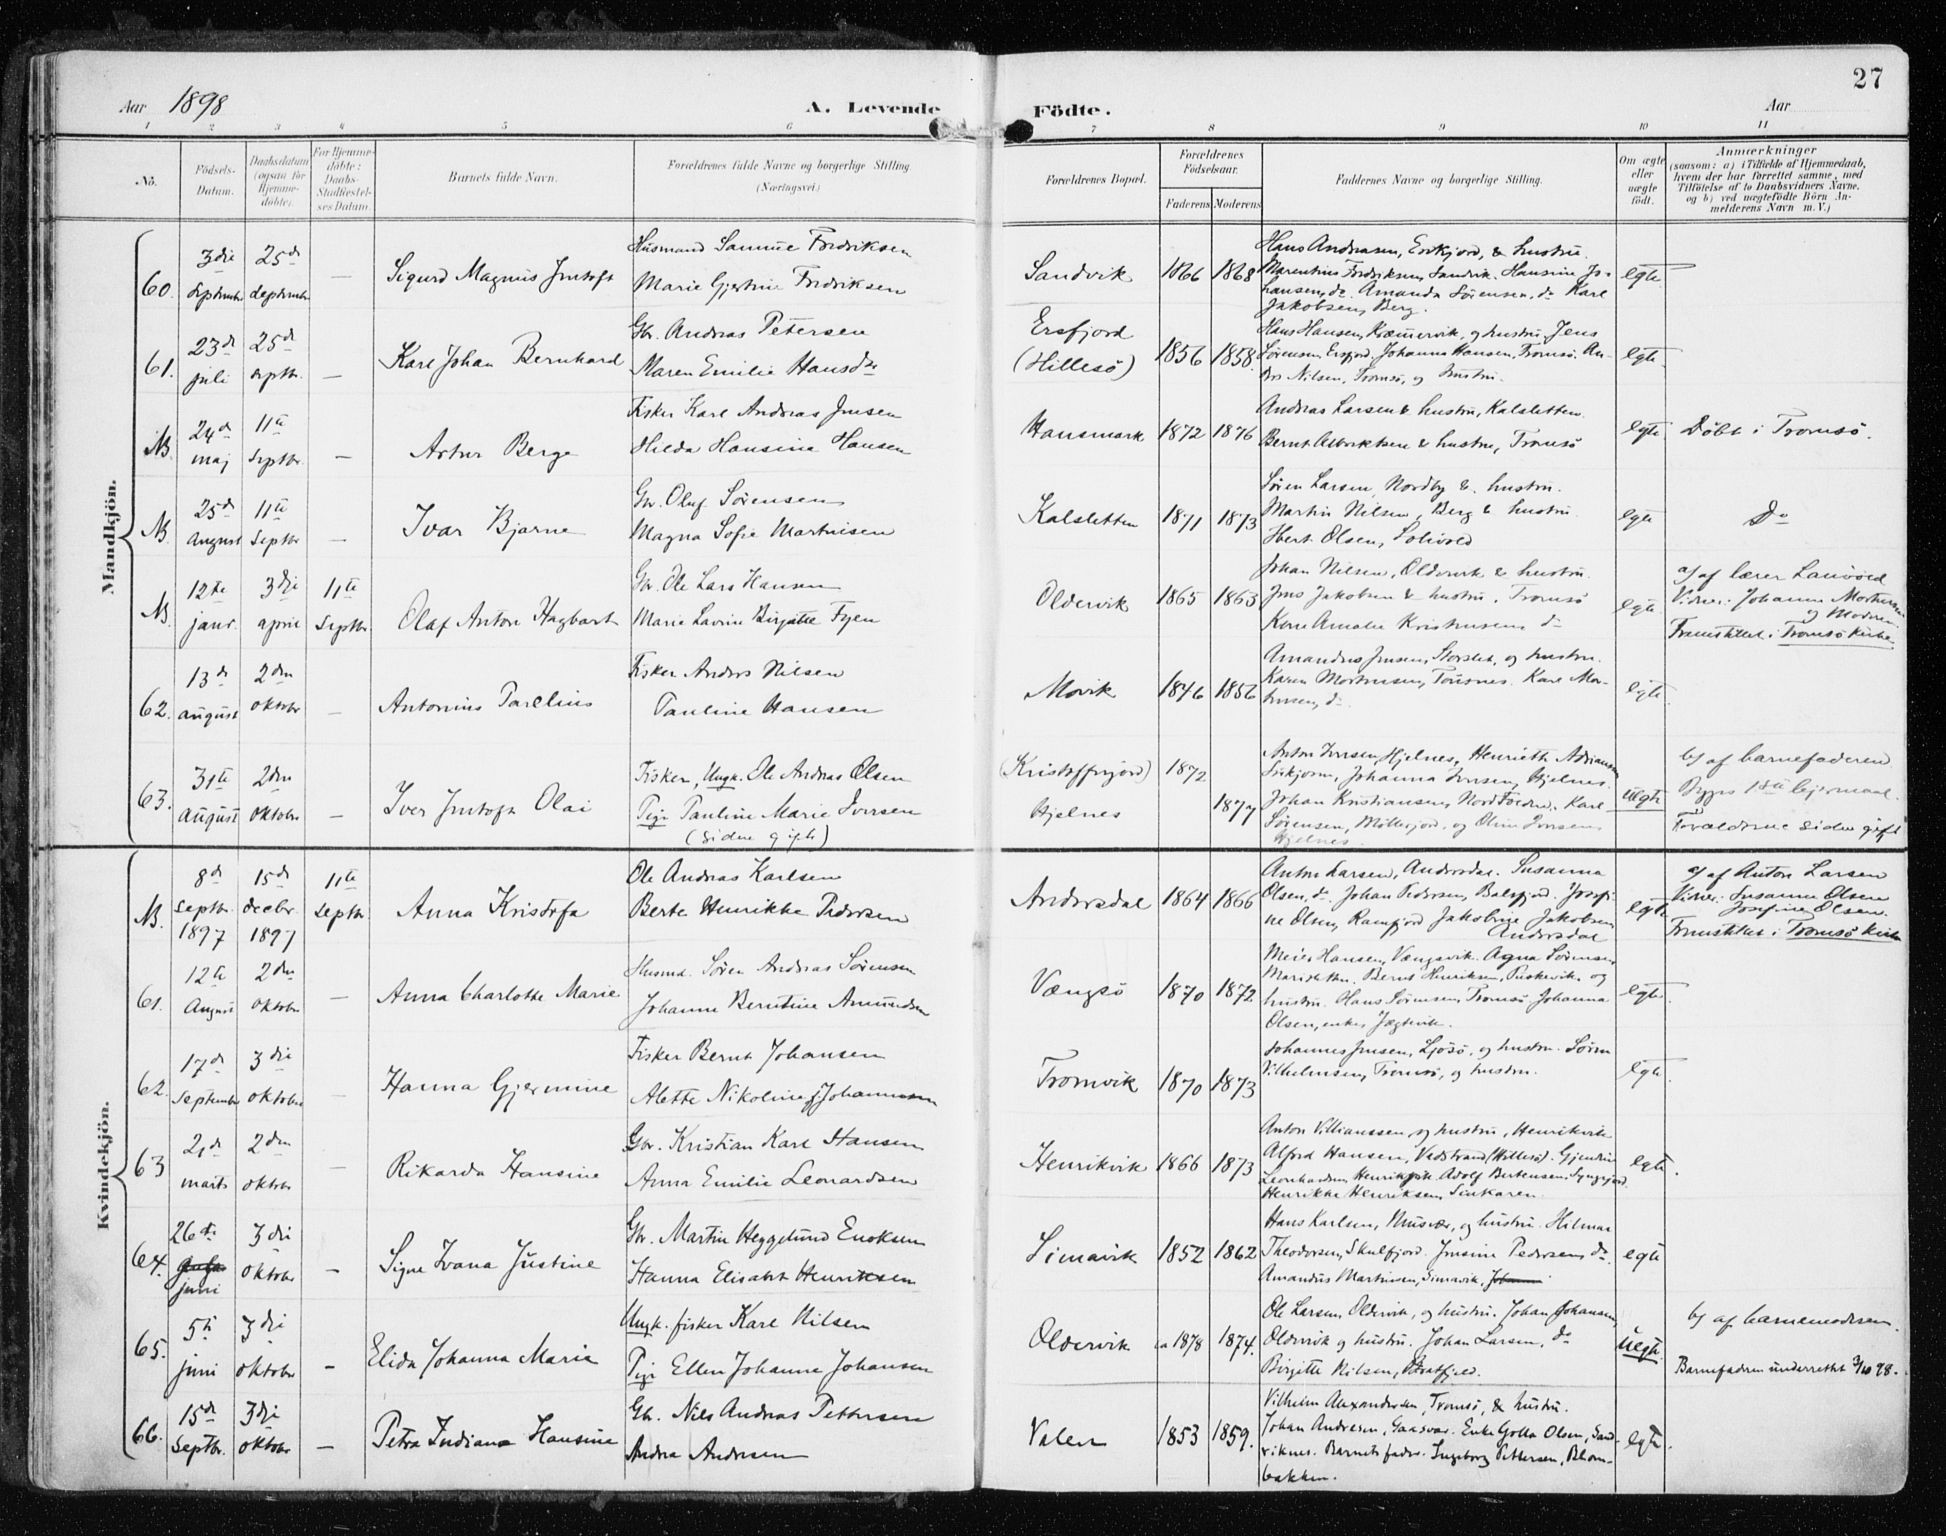 27
Aar 1898 A. Levende Födte. Aar
1 2 3 4 5 6 7 8 9 10 11
No. Födsels-Datum. Daabsdatum (ogsaa for Hjemme-döbte). For Hjemme-döbte: Daabs-Stadfæstel-ses Datum. Barnets fulde Navn. Forældrenes fulde Navne og borgerlige Stilling. (Næringsvei.) Forældrenes Bopæl. Forældrenes Födselsaar. Faderens Moderens Faddernes Navne og borgerlige Stilling. Om ægte eller uægte födt. Anmærkninger
(saasom: a) i Tilfælde af Hjemmedaab,
hvem der har forrettet samme, med
Tilföielse af to Daabsvidners Navne,
og b) ved uægtefödte Börn An-
melderens Navn m. V.)
Mandkjön.
60. 3die september 25de september — Sigurd Magnus Jentoft
Husmand Fredriksen
Marie Gjertine Fredriksen
Sandvik 1866 1868
Hans Andreasen, Ersfjord, & hustru.
Marentius Fredriksen, Sandvik. Hansine Jo-
hansen, do. Amanda Sörensen, do. Karl
Jakobsen, Berg.
egte
61. 23de juli 25de septbr. — Karl Johan Bernhard
Gbr. Andreas Petersen
Maren Emilie Hansdtr
Ersfjord (Hillesö) 1856 1858.
Hans Hansen, Kræmervik, og hustru. Jens
Sörensen, Ersfjord. Johanna Hansen, Tromsö. An-
ders Nilsen, Tromsö, og hustru.
egte
N. 24de maj 11te Septbr. — Artur Berge
Fisker Karl Andreas Jensen
Hilda Hansine Hansen
Hansmark 1872 1876
Andreas Larsen & hustru, Kalsletten.
Bernt Albriktsen & hustru, Tromsö
egte Döbt i Tromsö.
N. 25de August 11te Septbr — Ivar Bjarne
Gbr. Oluf Sörensen
Magna Sofie Martinsen
Kalsletten 1871 1873
Sören Larsen, Nordby & hustru.
Martin Nilsen, Berg & hustru.
Olsen,
egte Do
N. 12te janr. 3die april 11te Septbr. Olaf Anton Hagbart
Gbr. Ole Lars Hansen
Marie Lavine Birgitte Fyen
Oldervik 1865 1863
Johan Nilsen, Oldervik & hustru.
Jens Jakobsen & hustru, Tromsö
Amalie Kristensen do
egte
a) af lærer
Vidner: Johanne
og Moderen
Fremstillet i Tromsö kirke.
62. 13de august 2den oktober — Antonius Parelius
Fisker Anders Nilsen
Pauline Hansen
Movik 1846 1856
Amandus Jensen, Storslet, og hustru.
Karen Mortensen, Tönsnes. Karl Mor-
tensen, do.
egte
63. 31te august 2den oktober — Iver Jentoft Olai
Fisker, Ungk. Ole Andreas Olsen
Pige Pauline Marie Iversen
(siden gifte)
(Kristoffenjord) Hjelnes 1872 1877
Anton Iversen, Hjelnes, Henriette Adriansen,
Johanna Iversen, Hjelnes.
Johan Kristiansen, Karl
Sörensen, og Iversen
Hjelnes.
uegte
b) af barnefaderen
Begges 1ste leiermaal.
Forældrene siden gift
Kvindekjön.
N. 8de septbr. 1897 15de decbr. 1897 11te septbr. Anna Kristofa
Ole Andreas Karlsen
Berte Henrikke Pedersen
Andersdal 1864 1866
Anton Larsen, Andersdal. Susanna
Olsen, do. Johan Pedersen, Balsfjord. Josefi-
ne Olsen, Ramfjord Jakobine Jakobsen
Andersdal
egte
a) af Anton Larsen
Vidner: Susanne Olsen
Josefine Olsen.
Fremstillet i Tromsö kirke
61. 12te August 2den oktober — Anna Charlotte Marie
Husmd. Sören Andreas Sörensen
Johanne Berntine Amundsen
Vængsö 1870 1872
Meier Hansen, Vængsvik. Agna Sörensen,
Bernt Henriksen, og
hustru. Hans Sörensen, Tromsö, Johanna
Olsen, enke, Jægtvik.
egte
62. 17de September 3die oktober — Hanna Gjermine
Fisker Bernt Johansen
Alette Nikoline Johannesen
Tromvik 1870 1873
Johannes Jensen, Ljösö, og hustru. Sören
Vilhelmsen, Tromsö, og hustru.
egte
63 21de marts 2den oktober — Rikarda Hansine
Gbr. Kristian Karl Hansen
Anna Emilie Leonardsen
Henrikvik 1866 1873
Anton Villianssen og hustru, Henrikvik
Alfred Hansen, Vadstrand (Hillesö). Gjendine
Leonhardsen, Henrikvik. Adolf Bertensen,
Henrikke Henriksen,
egte.
64. 26de juni 3die oktober — Signe Ivana Justine
Gbr. Martin Heggelund Enoksen
Hanna Elisabet Henriksen
Simavik 1852 1862
Hans Karlsen, Musvær, og hustru. Hilmar
Theodorsen, Skulfjord. Jensine Pedersen, do.
Amandus Martinsen, Simavik,
egte
65. 5te juni 3die oktober — Elida Johanna Marie
Ungk. fisker Karl Nilsen
Pige Ellen Johanna Johansen
Oldervik ca 1878 1874.
Ole Larsen, Oldervik, og hustru. Johan Johansen,
Oldervik og hustru. Johan Larsen, do
Birgitte Nilsen, Bratfjeld.
uegte.
b) af barnemoderen.
Barnefaderen underrettet 3/10 98.
66. 15de Septbr. 3die oktober — Petra Indiana Hansine
Gbr. Nils Andreas Pettersen
Andrea Andresen
Valen 1853 1859.
Vilhelm Alexandersen, Tromsö, & hustru.
Johan Andresen, Gaasvær. Enke Golla Olsen, Sand-
viknes. Barnets fader. Ingeborg Pettersen, Blom-
bakken.
egte.